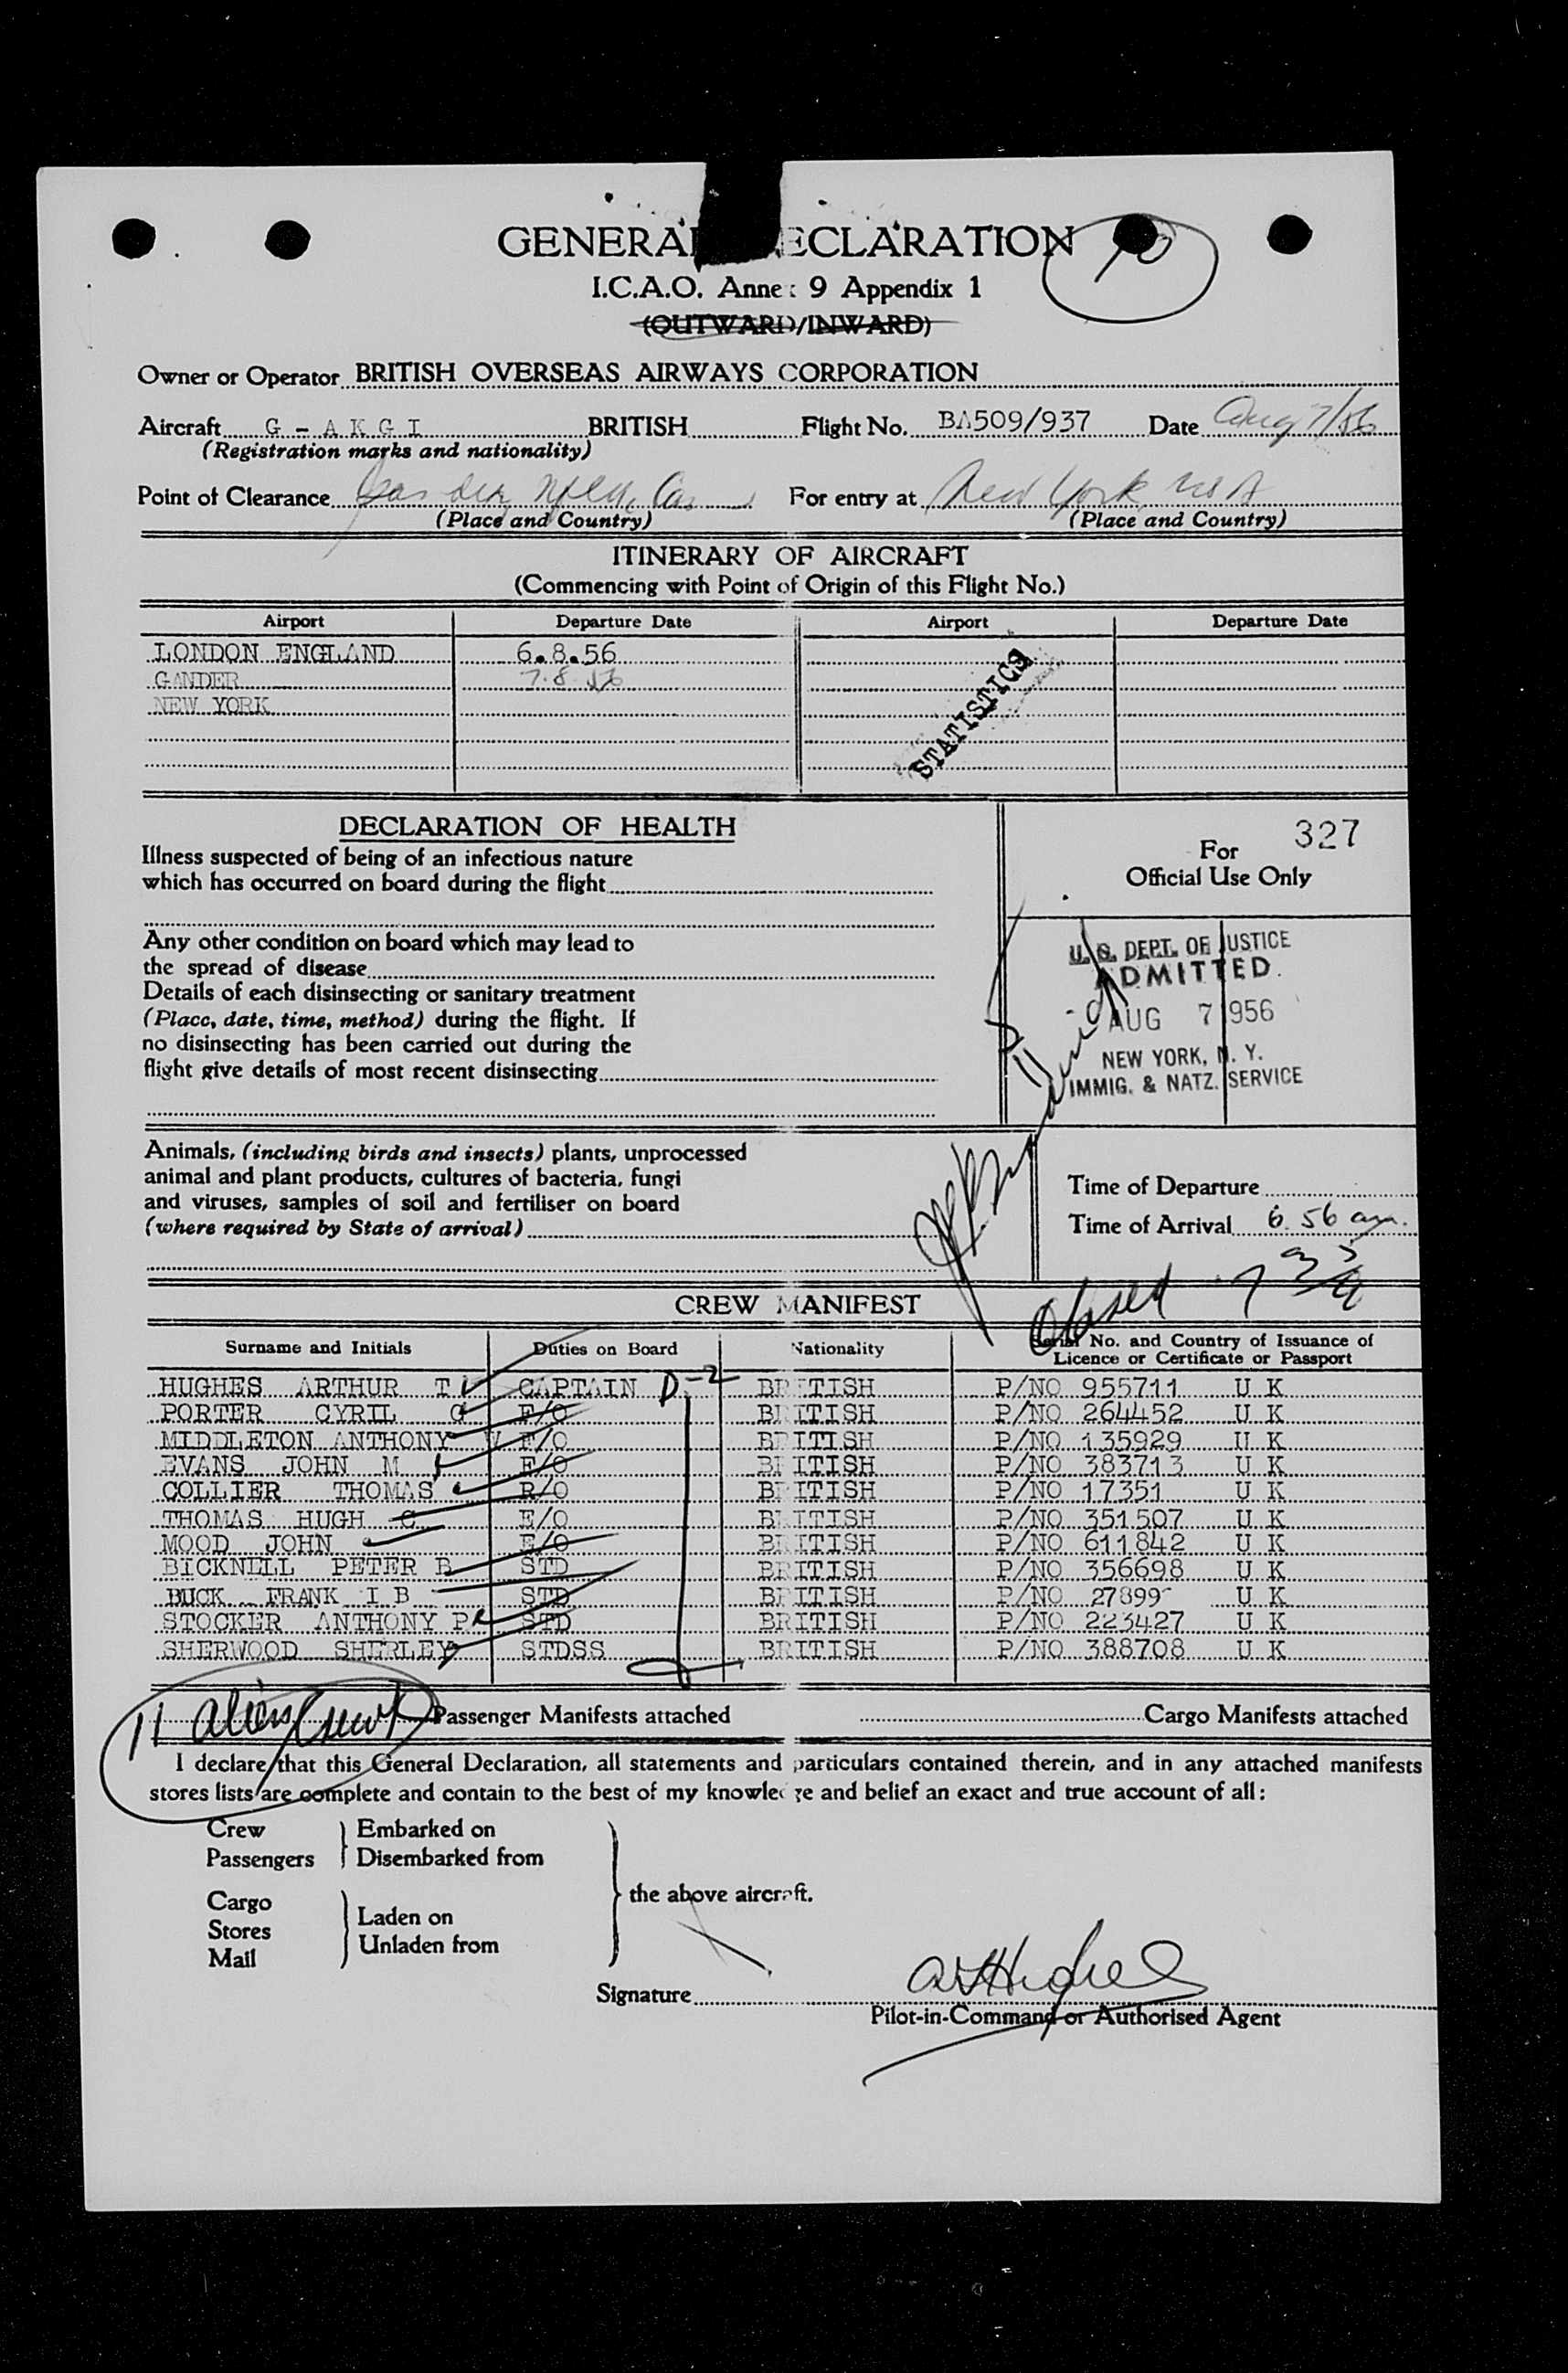 GENERAL DECLARATION
10
I.C.A.O. Annex 9 Appendix 1
(OUTWARD/INWARD)
Owner or Operator BRITISH OVERSEAS AIRWAYS CORPORATION
Aircraft G - A K G I BRITISH Flight No. BA509/937 Date Aug 7/56
(Registration marks and nationality)
Point of Clearance Gander Nfld, Can For entry at New York USA
(Place and Country) (Place and Country)
ITINERARY OF AIRCRAFT
(Commencing with Point of Origin of this Flight No.)
Airport Departure Date Airport Departure Date
LONDON ENGLAND 6.8.56
GANDER 7.8.56
NEW YORK
STATISTICS
DECLARATION OF HEALTH
Illness suspected of being of an infectious nature
which has occurred on board during the flight
Any other condition on board which may lead to
the spread of disease
Details of each disinsecting or sanitary treatment
(Place, date, time, method) during the flight. If
no disinsecting has been carried out during the
flight give details of most recent disinsecting
For 327
Official Use Only
U. S. DEPT. OF JUSTICE
ADMITTED
AUG 7 1956
NEW YORK, N. Y.
IMMIG. & NATZ. SERVICE
Animals, (including birds and insects) plants, unprocessed
animal and plant products, cultures of bacteria, fungi
and viruses, samples of soil and fertiliser on board
(where required by State of arrival)
Time of Departure
Time of Arrival 6.56 am.
Closed 7 35
CREW MANIFEST
Surname and Initials Duties on Board Nationality Serial No. and Country of Issuance of
Licence or Certificate or Passport
HUGHES ARTHUR T CAPTAIN D-2 BRITISH P/NO 955711 U K
PORTER CYRIL G F/O BRITISH P/NO 264452 U K
MIDDLETON ANTHONY W F/O BRITISH P/NO 135929 U K
EVANS JOHN M F/O BRITISH P/NO 383713 U K
COLLIER THOMAS R/O BRITISH P/NO 17351 U K
THOMAS HUGH C E/O BRITISH P/NO 351507 U K
MOOD JOHN E/O BRITISH P/NO 611842 U K
BICKNELL PETER B STD BRITISH P/NO 356698 U K
BUCK FRANK I B STD BRITISH P/NO 27899 U K
STOCKER ANTHONY P STD BRITISH P/NO 223427 U K
SHERWOOD SHERLEY STDSS BRITISH P/NO 388708 U K
11 aliens Crew
Passenger Manifests attached Cargo Manifests attached
I declare that this General Declaration, all statements and particulars contained therein, and in any attached manifests
stores lists are complete and contain to the best of my knowledge and belief an exact and true account of all:
Crew Embarked on
Passengers Disembarked from
the above aircraft.
Cargo
Stores Laden on
Mail Unladen from
Signature A T Hughes
Pilot-in-Command or Authorised Agent